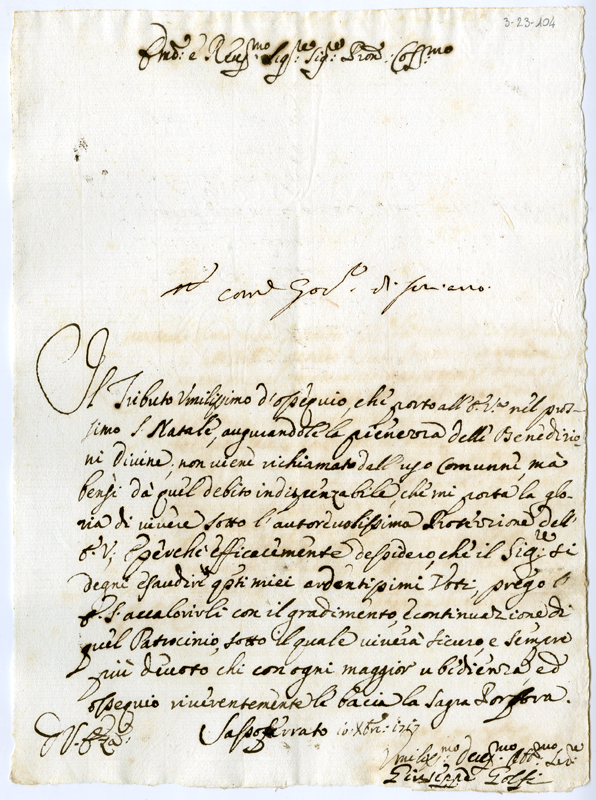 3-23-104
Em.o e Reu.mo Sig.re Sig.re Pron. Coll.mo
di
Il Tributo Vmilissimo d'osseguio, che porto all'E.V.ra nel pros-
simo S. Natale, augurandole la pienezza delle Benedizio-
ni divine, non viene richiamato dall'uso Comunne, mà
bensì dà quel debito indispenzabile, che mi porta la glo-
ria di vivere sotto l'autoreuolissima Protezzione dell'
E.V; E perche efficacemente desidero, che il Sig.re si
degni esaudire q.sti miei ardentissimi Voti, prego
accalorirli con il gradimento, e continuazione di
quel Patrocinio, sotto il quale viverà sicuro, e sempre
più deuoto chi con ogni maggior ubidienza, ed
osseguio riuerentemente le bacia la Sagra Porpora.
Sassoferrato 10 Xbre: 1717
D V. E.za
Vmiliss.mo Deu.mo Obb.mo Ser.re
Giuseppe Golfi